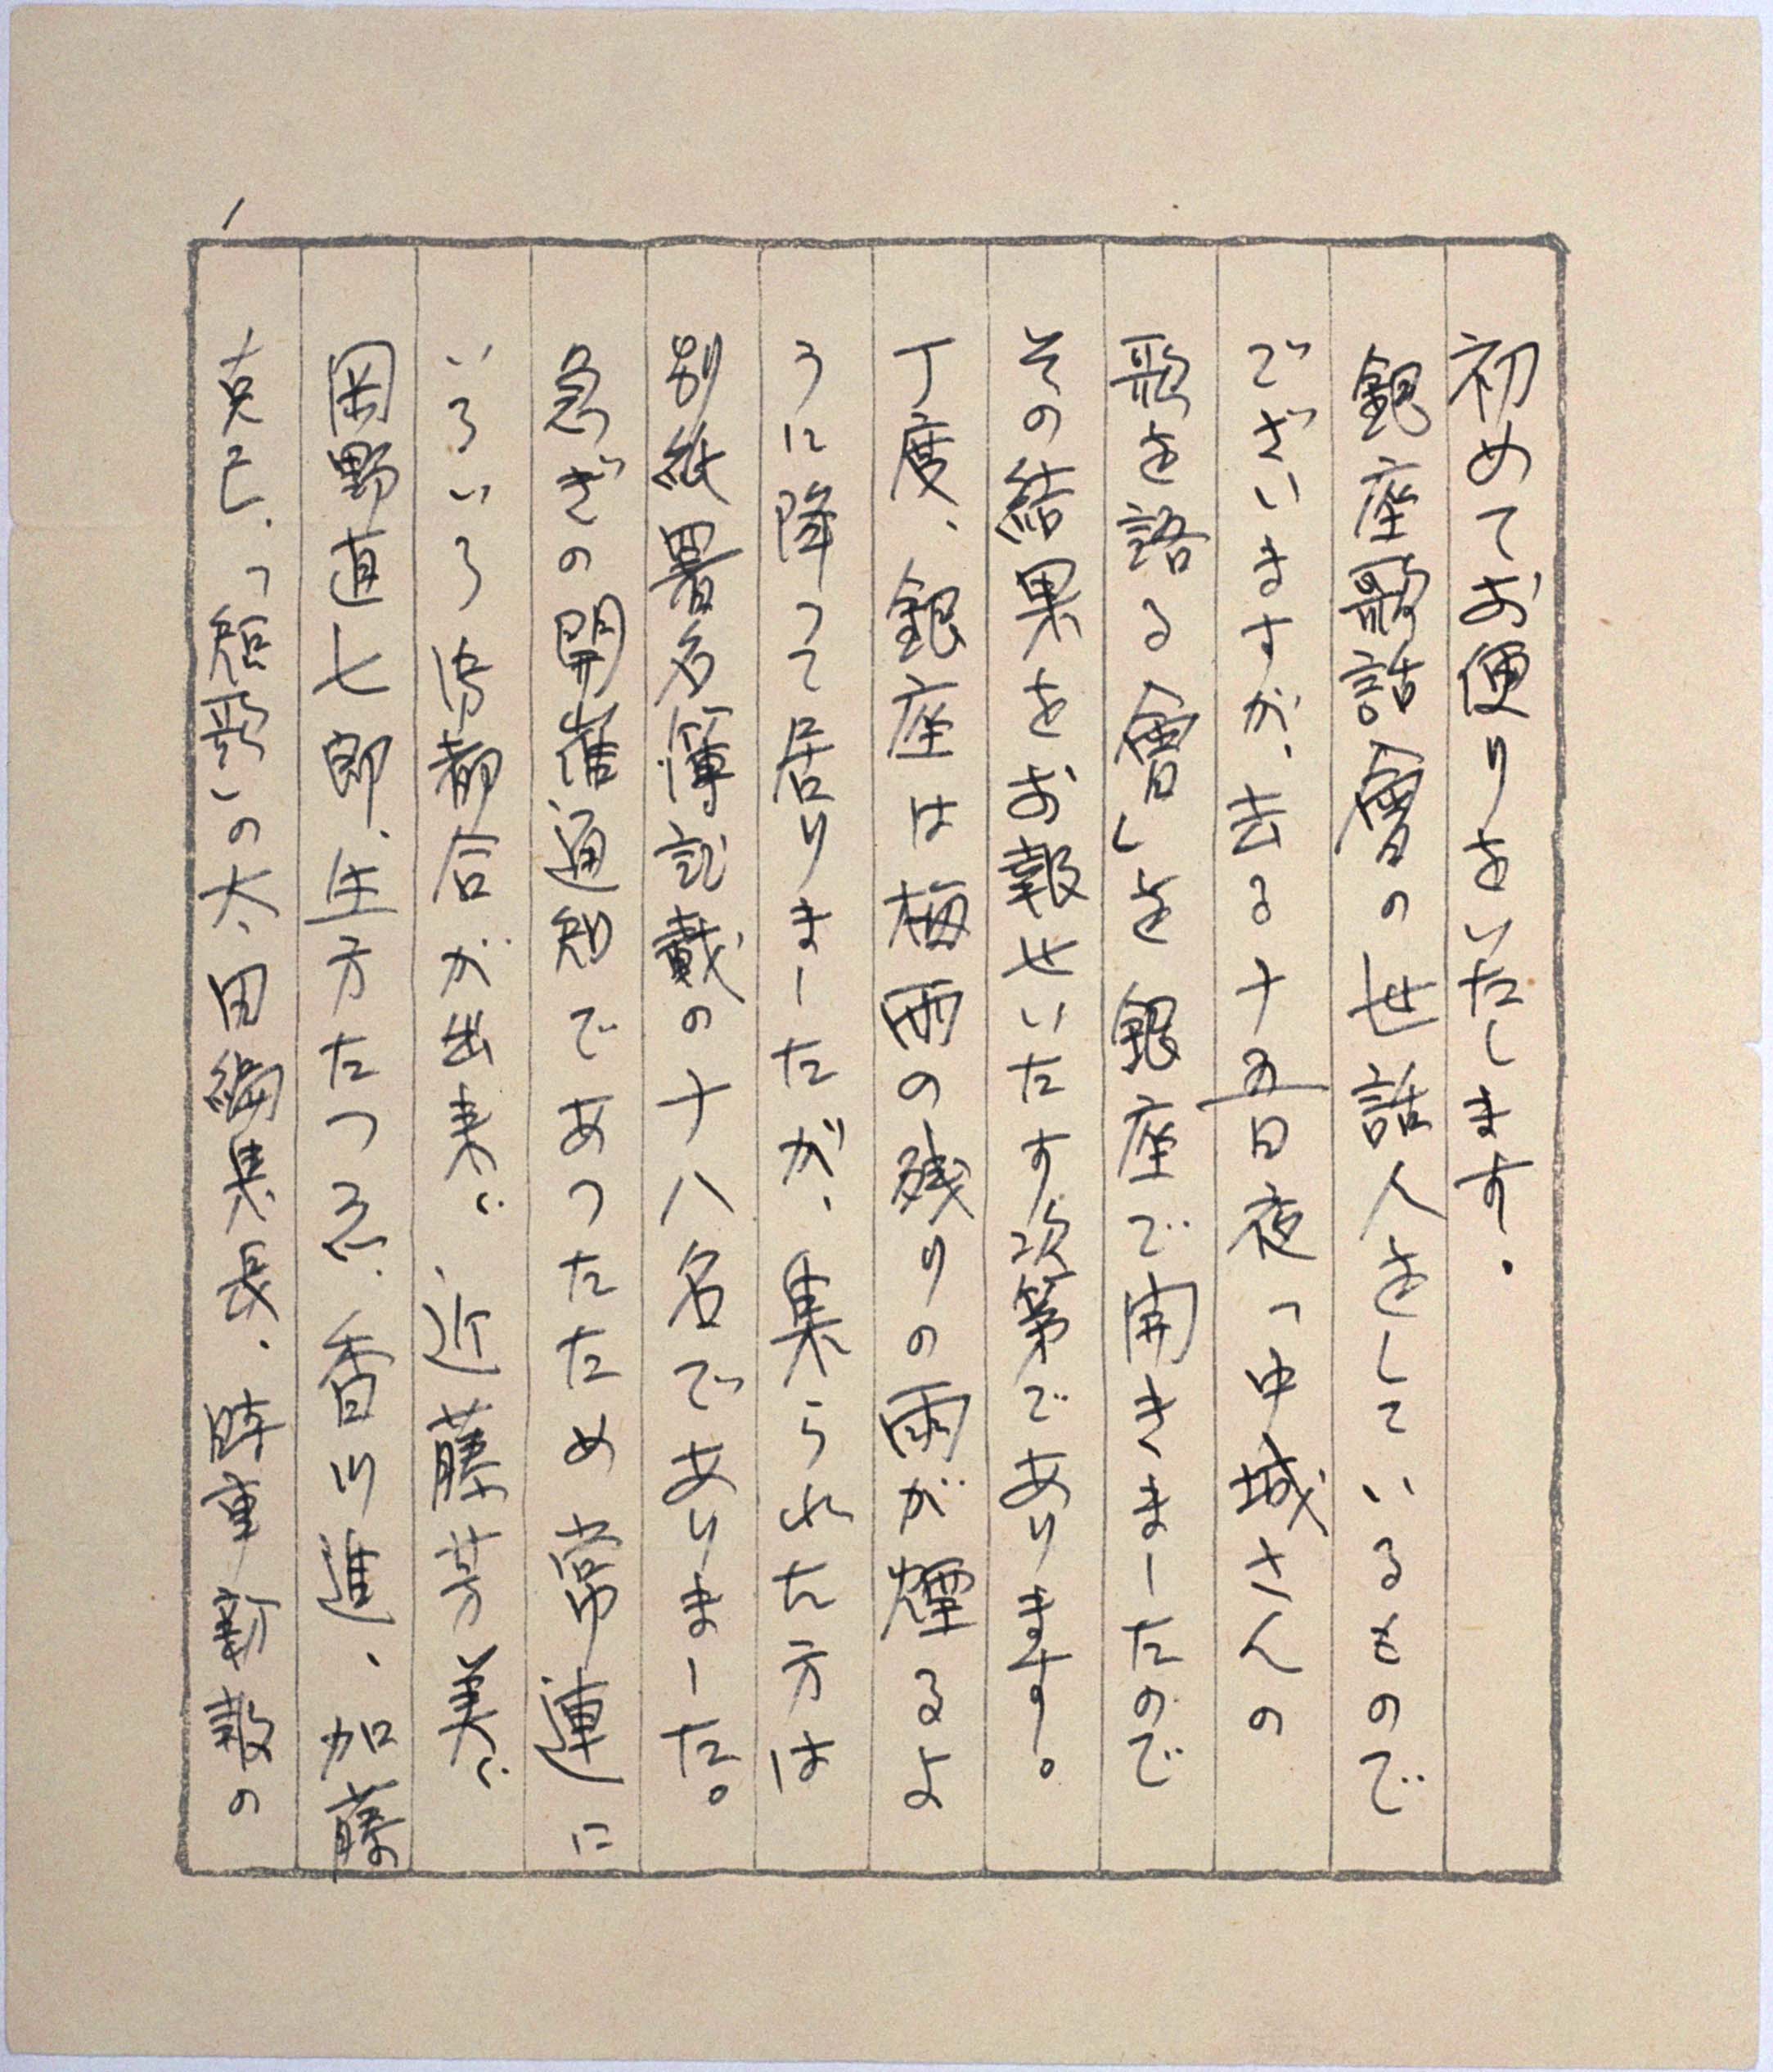 初めてお便りをいたします.
銀座歌話會の世話人をしているもので
ございますが、去る十五日夜「中城さんの
歌を語る會」を銀座で開きましたので
その結果をお報せいたす次第であります。
丁度、銀座は梅雨の残りの雨が煙るよ
うに降って居りましたが、集られた方は
別紙署名簿記載の十八名でありました。
急ぎの開催通知であつたため常連に
いろいろ御都合が出来、近藤芳美、
岡野直七郎、生方たつゑ、香川進、加藤
克巳、「短歌」の太田編集長、時事新報の